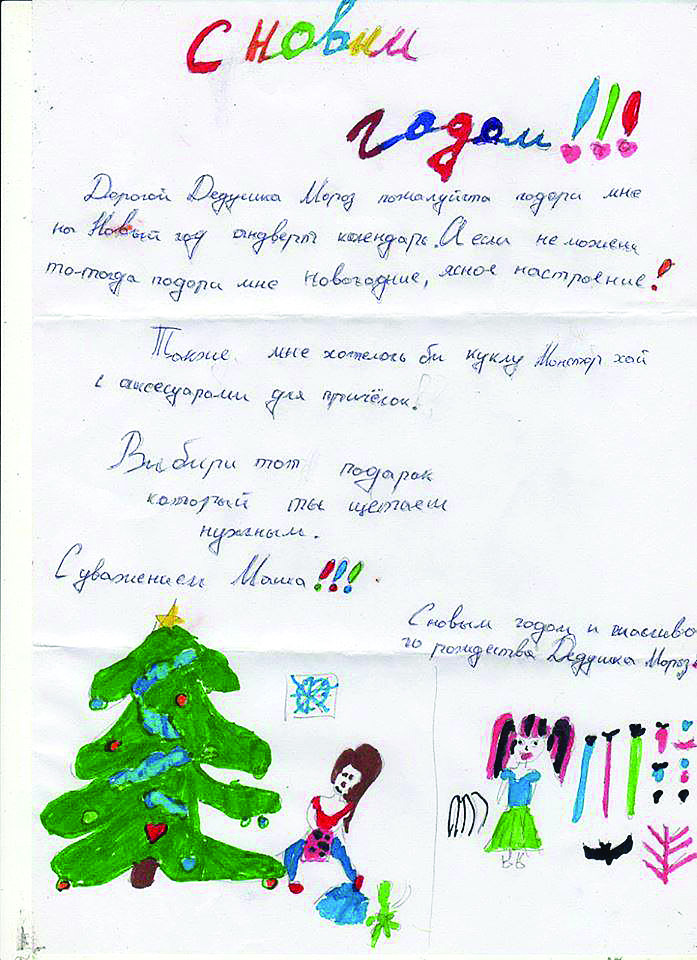 С новым
годом!!!
Дорогой Дедушка Мороз пожалуйста подари мне
на Новый год андверт календарь. А если не можеш
то-тогда подари мне новогодние, ясное настроение!
Также мне хотелось би куклу Монстер хай
с аксесуарами для причёсок!
Выбири тот подарок
который ты щетаеш
нужным.
С уважением Маша!!!
С новым годом и щасливо
го рождества Дедушка Мороз!